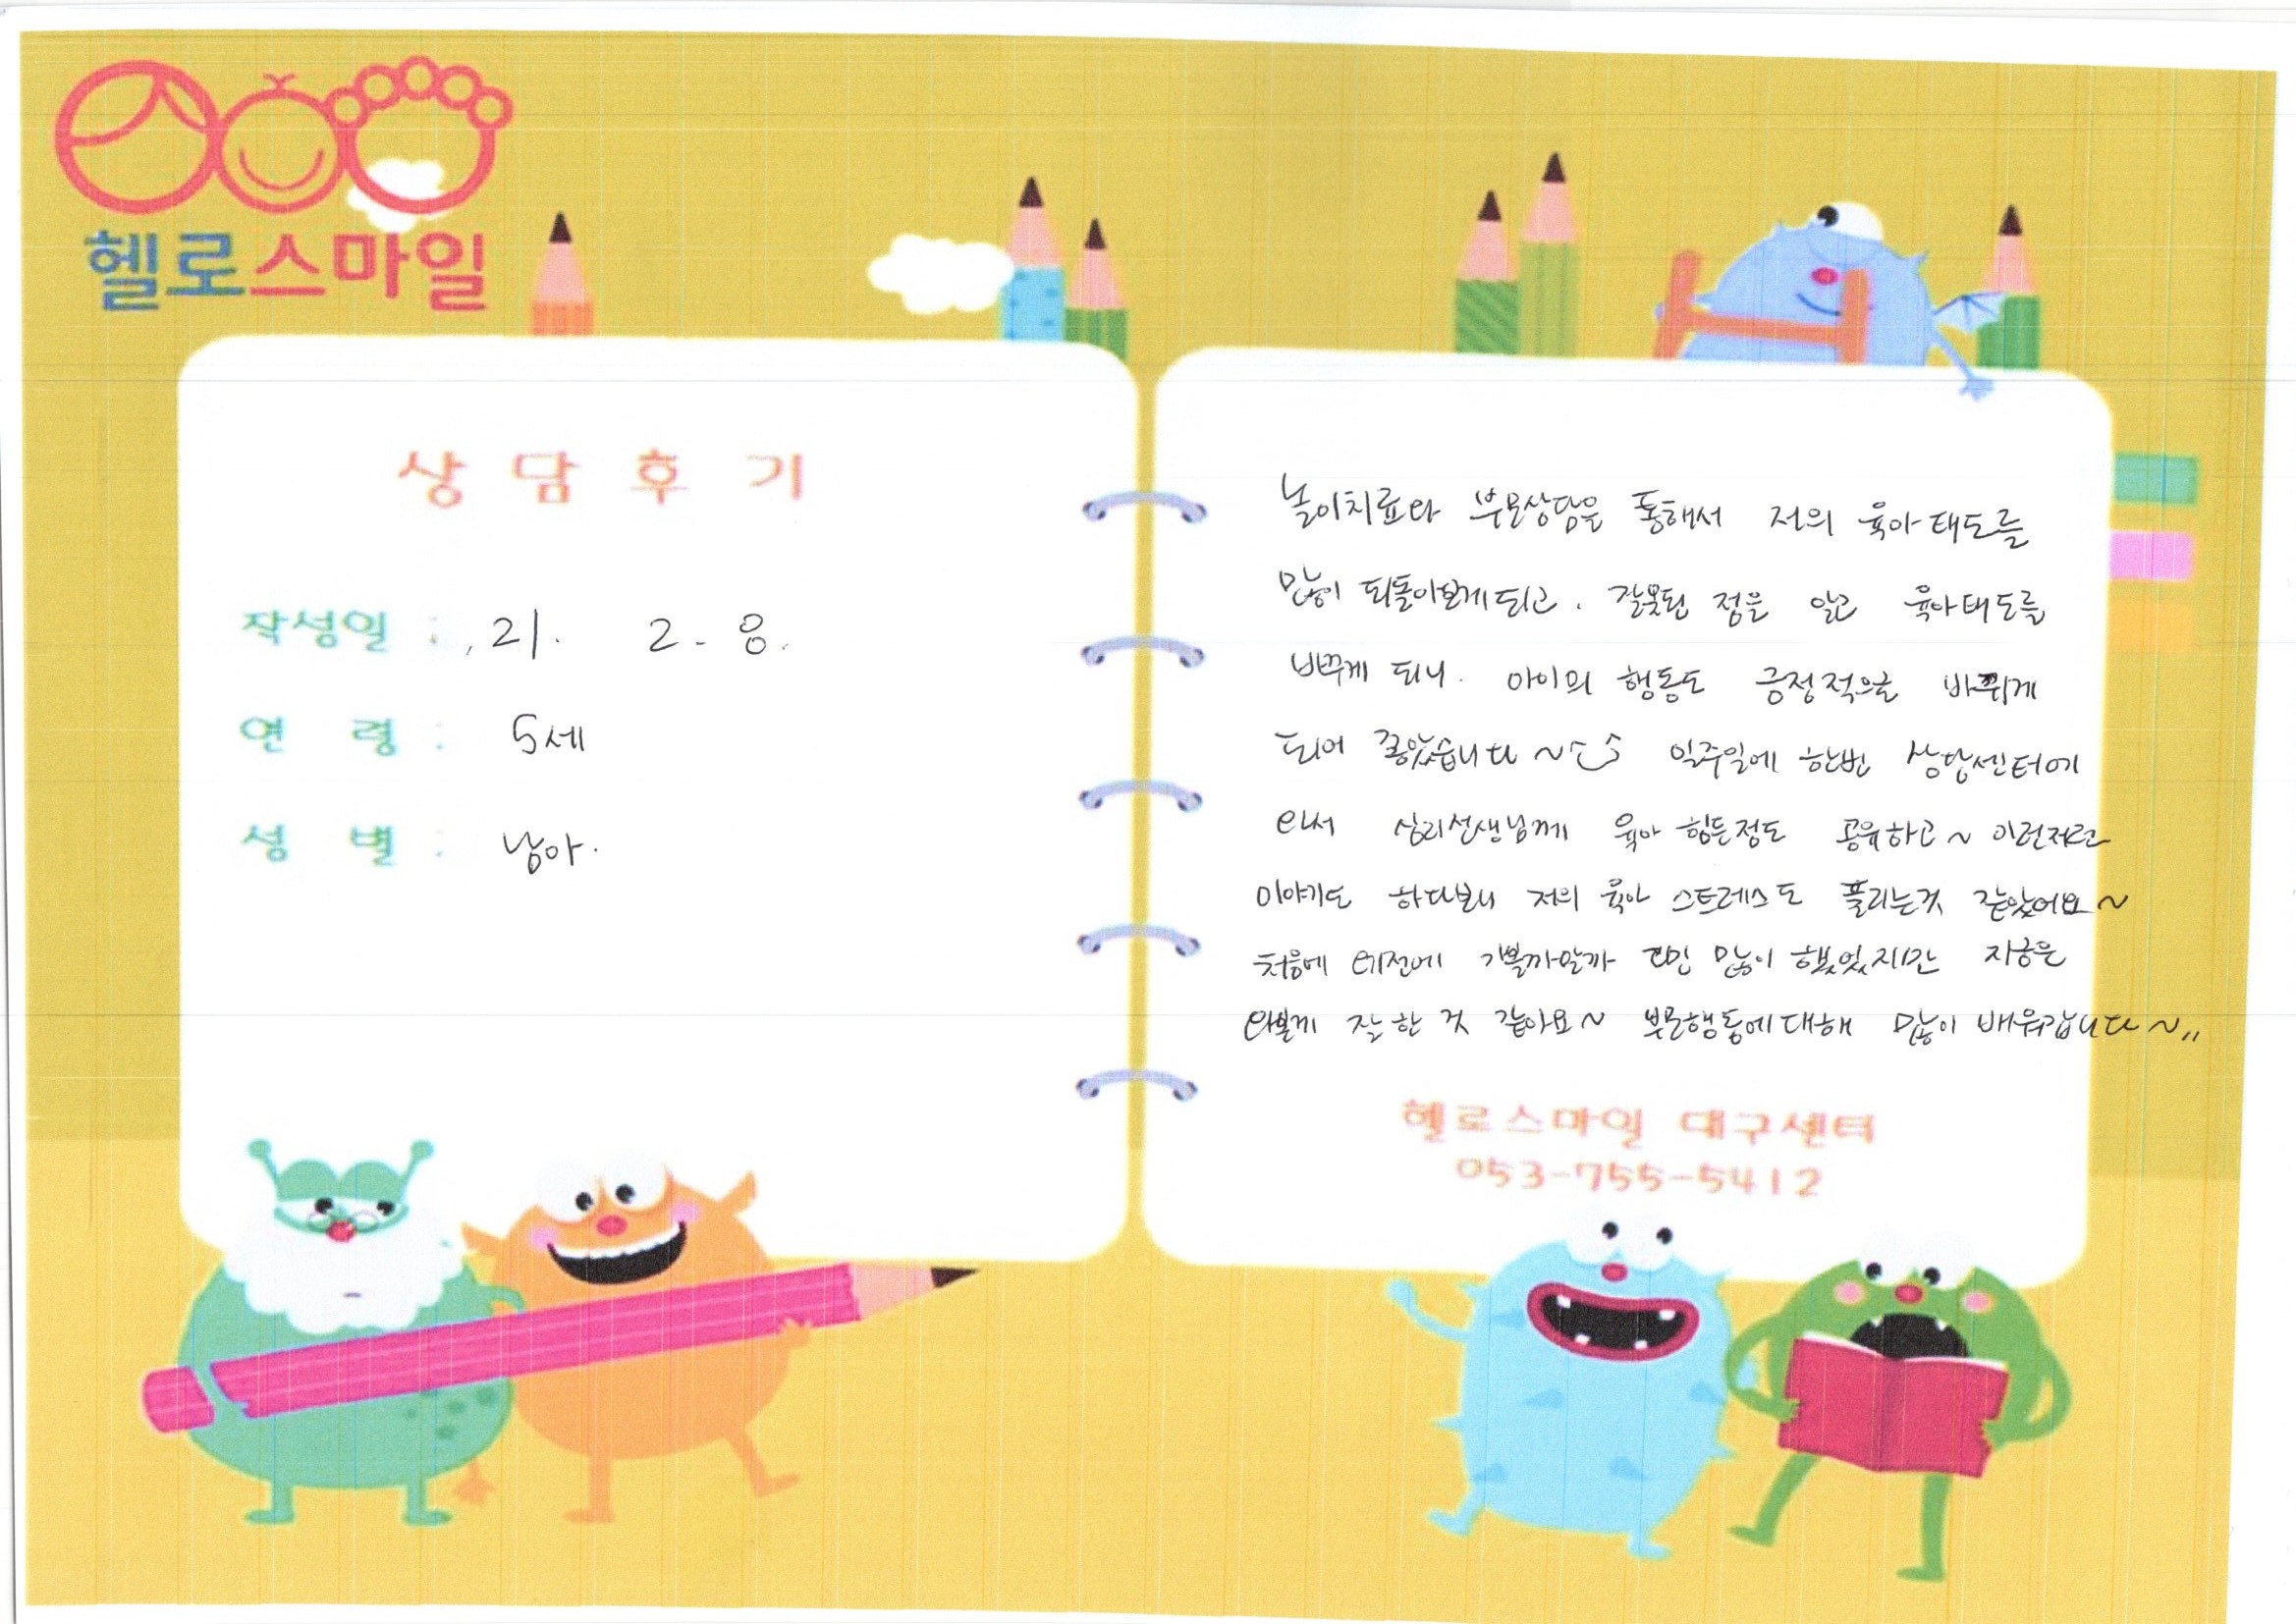 헬로스마일
상담후기
작성일 : , 21. 2. 8.
연령 : 5세
성별 : 남아.
놀이치료와 부모상담을 통해서 저의 육아태도를
많이 되돌아보게되고. 잘못된 점을 알고 육아태도를
바꾸게 되니. 아이의 행동도 긍정적으로 바뀌게
되어 좋았습니다~ 일주일에 한번 상담센터에
와서 심리선생님께 육아 힘든정도 공유하고~ 이런저런
이야기도 하다보니 저의 육아 스트레스도 풀리는것 같았어요~
처음에 예전에 가볼까말까 고민 많이 했었지만 지금은
와보게 잘 한 것 같아요~ 부모행동에대해 많이 배워갑니다~,,
헬로스마일 대구센터
053-755-5412